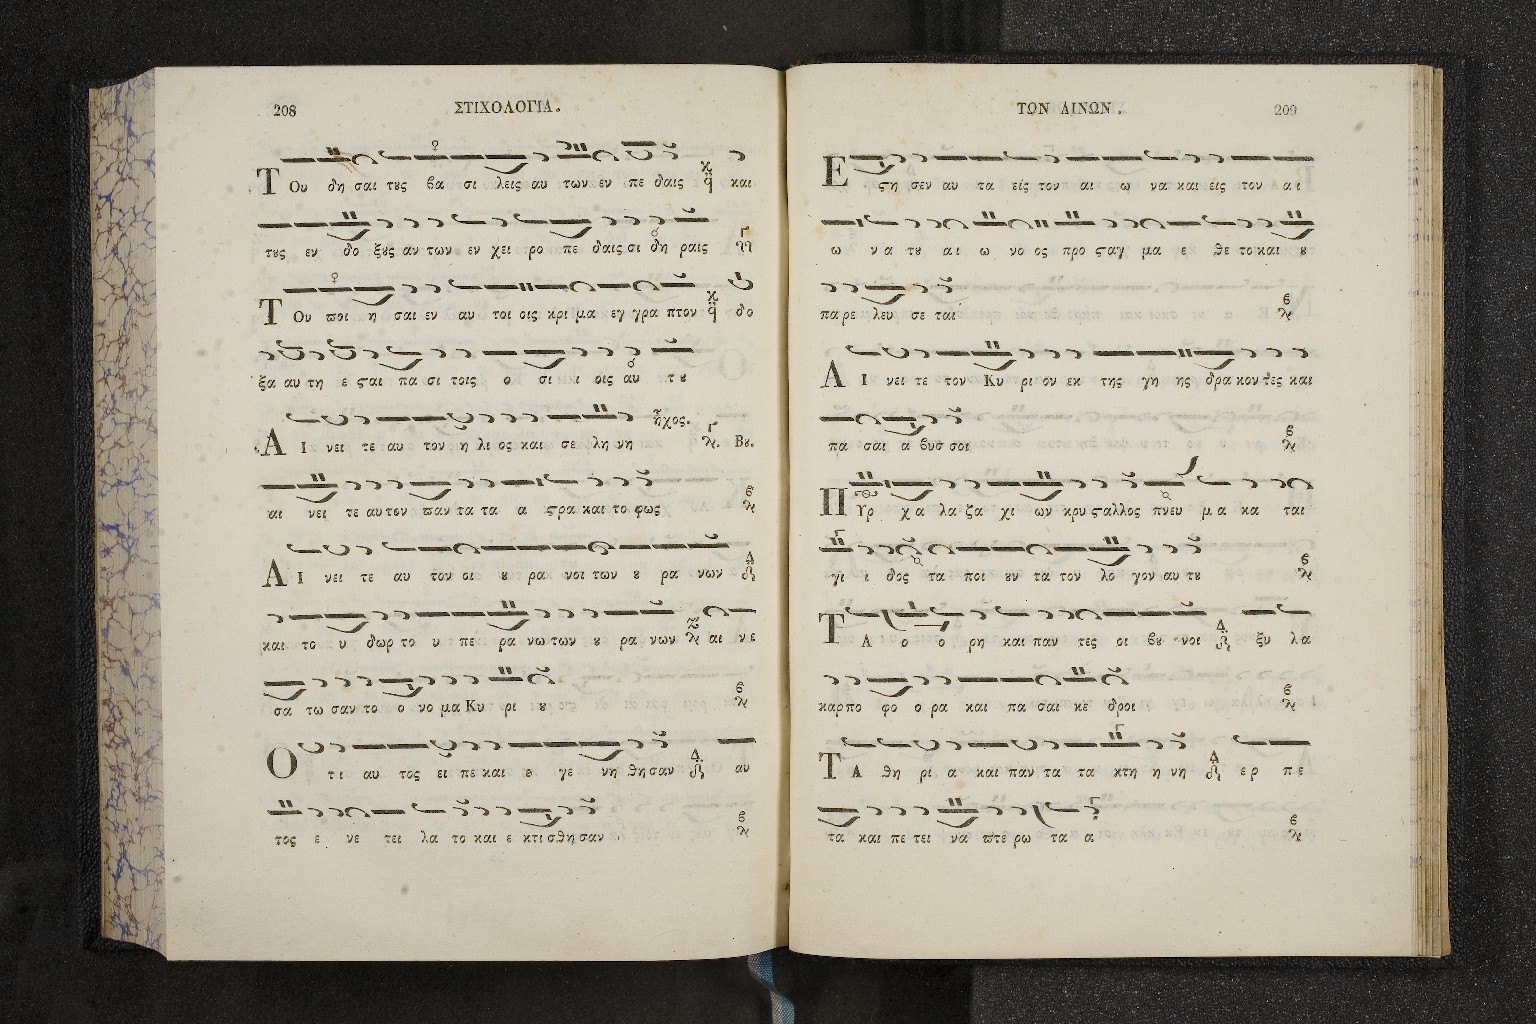 208 ΣΤΙΧΟΛΟΓΙΑ.
Του δη σαι τȣς βα σι λεις αυ των εν πε δαις και
τȣς εν δο ξȣς αν των εν χει ρο πε δαις σι δη ραις
Του ποι η σαι εν αυ τοι οις κρι μα εγ γρα πτον δο
ξα αυ τη ε ϛαι πα σι τοις ο σι ι οις αυ τȣ
ἦχος.
ΑΙ νει τε αυ τον η λι ος και σε λη νη Βȣ.
αι νει τε αυτον παν τα τα α ϛρα και το φως
ΑΙ νει τε αυ τον οι ȣ ρα νοι των ȣ ρα νων
και το υ δωρ το υ πε ρα νω των ȣ ρα νων αι νε
σα τω σαν το ο νο μα Κυ ρι ȣ
Ο τι αυ τος ει πε και ε γε νη θη σαν αυ
τος ε νε τει λα το και ε κτι σθη σαν
ΤΩΝ ΑΙΝΩΝ. 209
Ε ϛη σεν αυ τα εἰς τον αι ω να και εἰς τον αι
ω να τȣ αι ω νο ος προ ϛαγ μα ε θε το και ȣ
πα ρε λευ σε ται
ΑΙ νει τε τον Κυ ρι ον εκ της γη ης δρα κον τες και
πα σαι α βυσ σοι
ΠΥρ χα λα ζα χι ων κρυ ϛαλλος πνευ μα κα ται
γι ι δος τα ποι ȣν τα τον λο γον αυ τȣ
ΤΑ ο ο ρη και παν τες οι βȣ νοι ξυ λα
καρ πο φο ο ρα και πα σαι κε δροι
ΤΑ θη ρι α και παν τα τα κτη η νη ερ πε
τα και πε τει να πτε ρω τα α